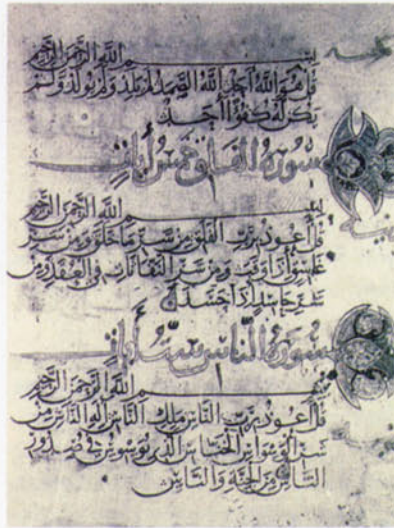 بسم الله الرحمن الرحيم
قل هو الله أحد الله الصمد لم يلد ولم يولد ولم
يكن له كفوا أحد
سورة الفلق خمس آيات
بسم الله الرحمن الرحيم
قل أعوذ برب الفلق من شر ما خلق ومن شر
غاسق إذا وقب ومن شر النفاثات في العقد ومن
شر حاسد إذا حسد
سورة الناس ست آيات
بسم الله الرحمن الرحيم
قل أعوذ برب الناس ملك الناس إله الناس من
شر الوسواس الخناس الذي يوسوس في صدور
الناس من الجنة والناس